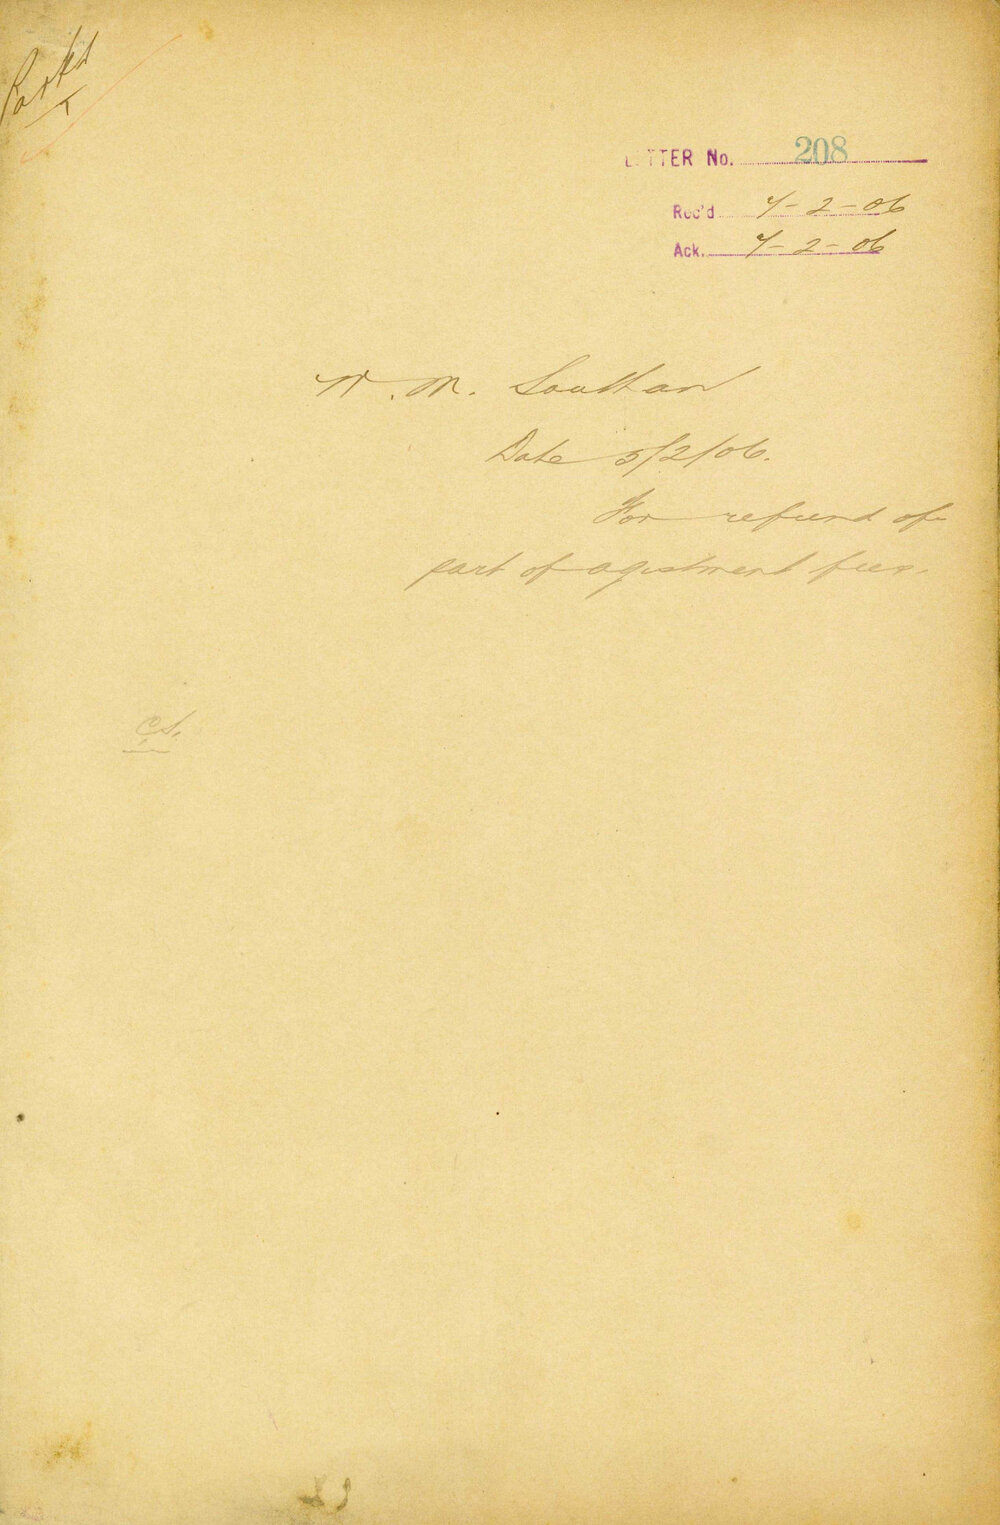 Parks
LETTER No. 208
Rec'd 7-2-06
Ack. 7-2-06
W. M. Southan
Date 5/2/06.
For refund of
part of agistment fees.